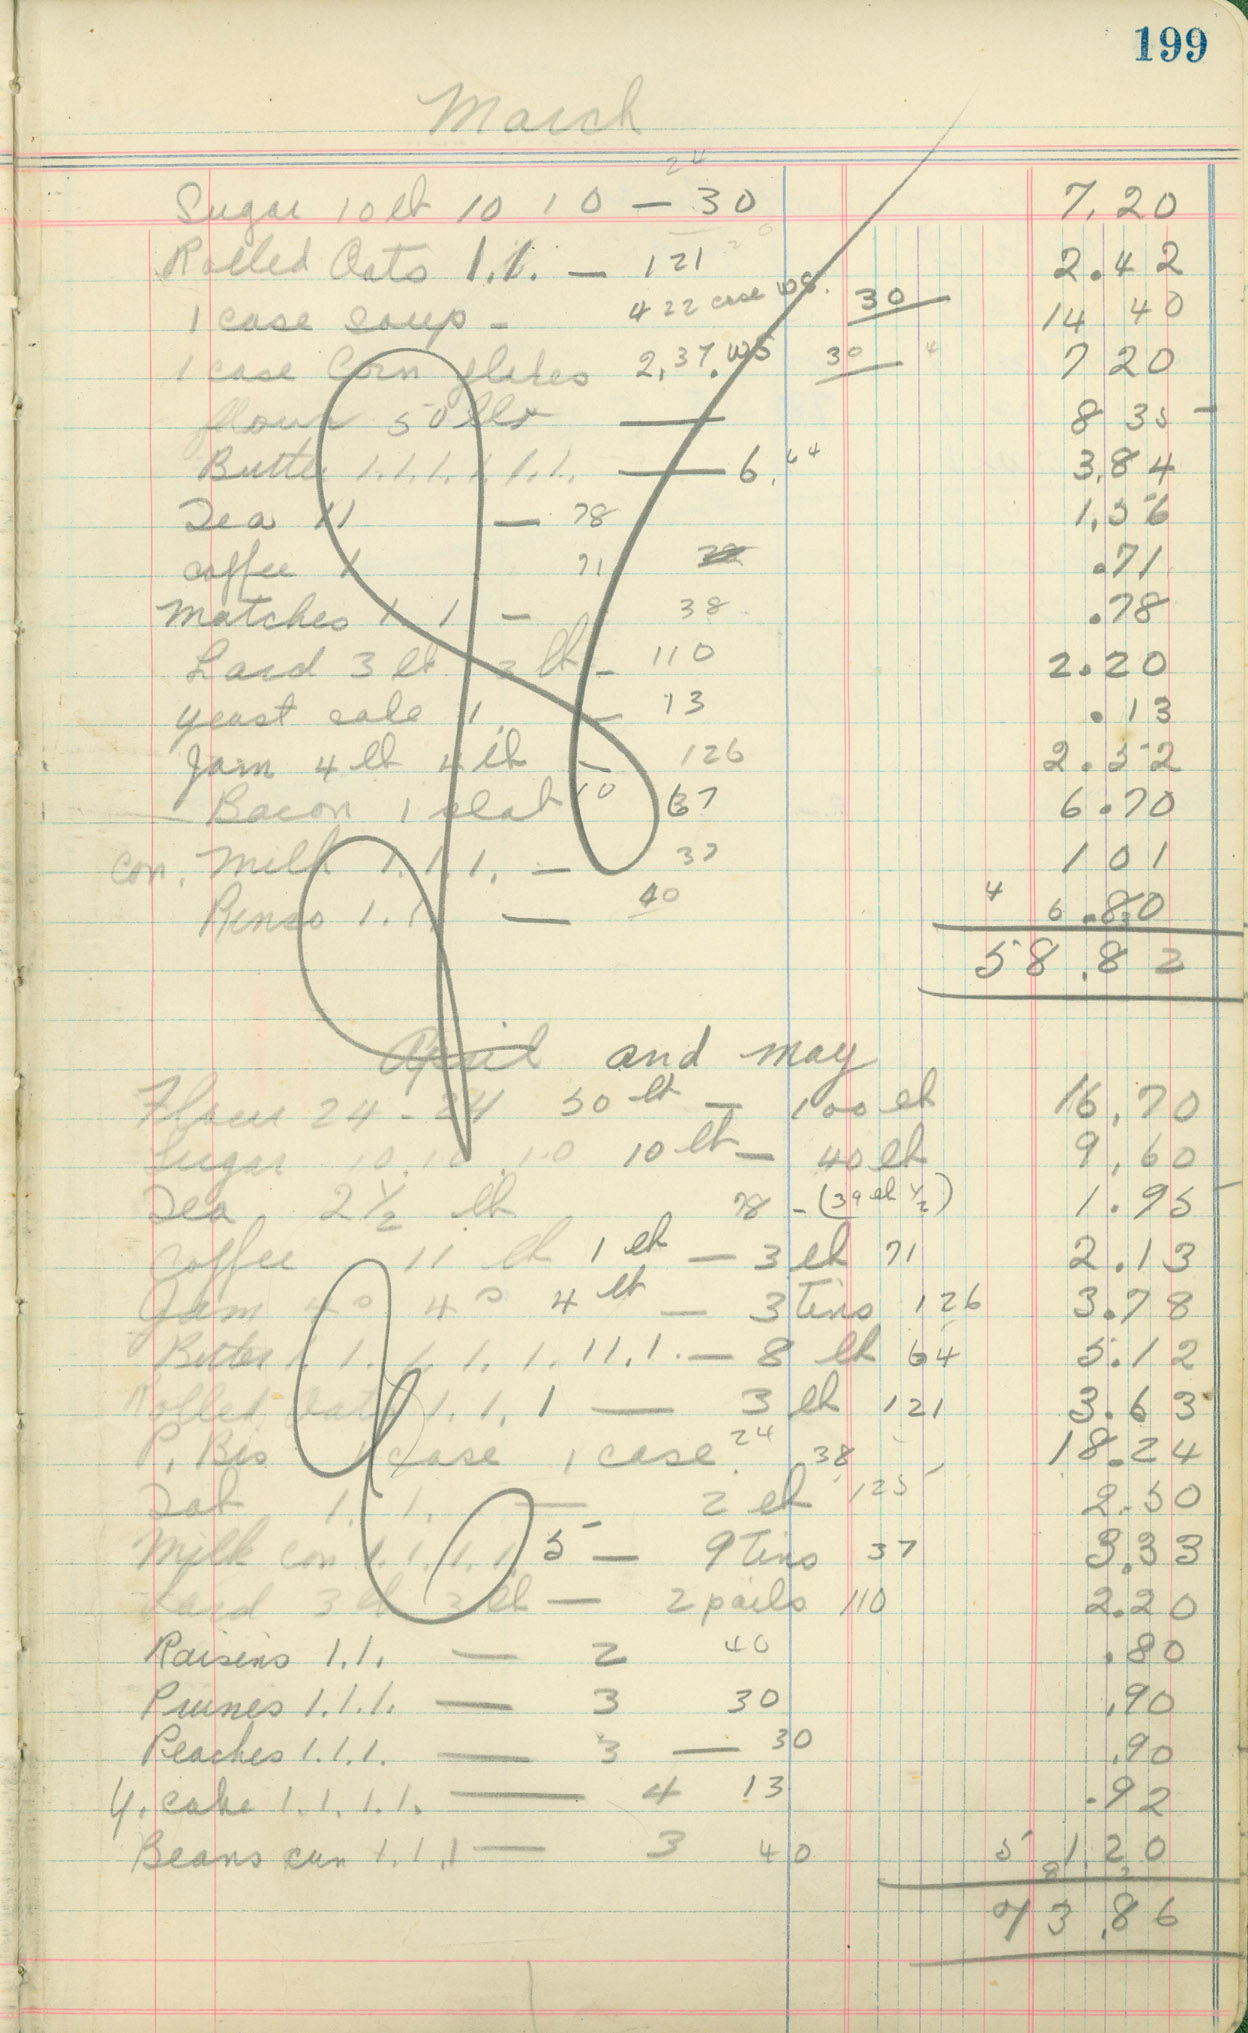 199
March
24
Sugar 10 lb 10 10 — 30 7.20
Rolled Oats 1.1. — 121 20 2.42
1 case soup - 422 case ws. 30 14 40
1 case Corn flakes 2,37. ws 30 4 7 20
flour 50 lbs — 8 35
Butter 1.1.1.1.1.1. — 6.44 3.84
Tea 11 — 78 1.56
coffee 1 71 .71
Matches 1. 1 — 38 .78
Lard 3 lb 3 lb - 110 2.20
yeast cake 1 — 13 .13
Jam 4 lb 4 lb — 126 2.52
Bacon 1 slab 10 67 6.70
con. Milk 1.1.1. — 37 1 01
Rinso 1.1. — 40 .80
4 6
58.82
April and may
Flour 24 - 24 50 lb — 100 lb 16.70
Sugar 10.10.10 10 lb — 40 lb 9.60
Tea 2 1/2 lb 78 - (39 lb 1/2) 1.95
Coffee 11 lb 1 lb — 3 lb 71 2.13
Jam 4 4 4 lb — 3 Tins 126 3.78
Butter 1 1. 1. 1. 1. 11.1. — 8 lb 64 5.12
Rolled Oats 1.1.1 — 3 lb 121 3.63
P. Bis 1 case 1 case 24 38 18.24
1.1. — 2 lb 125 2.50
Milk con 1.1.1.1. 5 — 9 Tins 37 3.33
Lard 3 lb 3 lb — 2 pails 110 2.20
Raisins 1.1. — 2 40 .80
Prunes 1.1.1. — 3 30 .90
Peaches 1.1.1. — 3 — 30 .90
Y. cake 1.1.1.1. — 4 13 .92
Beans can 1.1.1 — 3 40 1.20
5 8 2
73.86